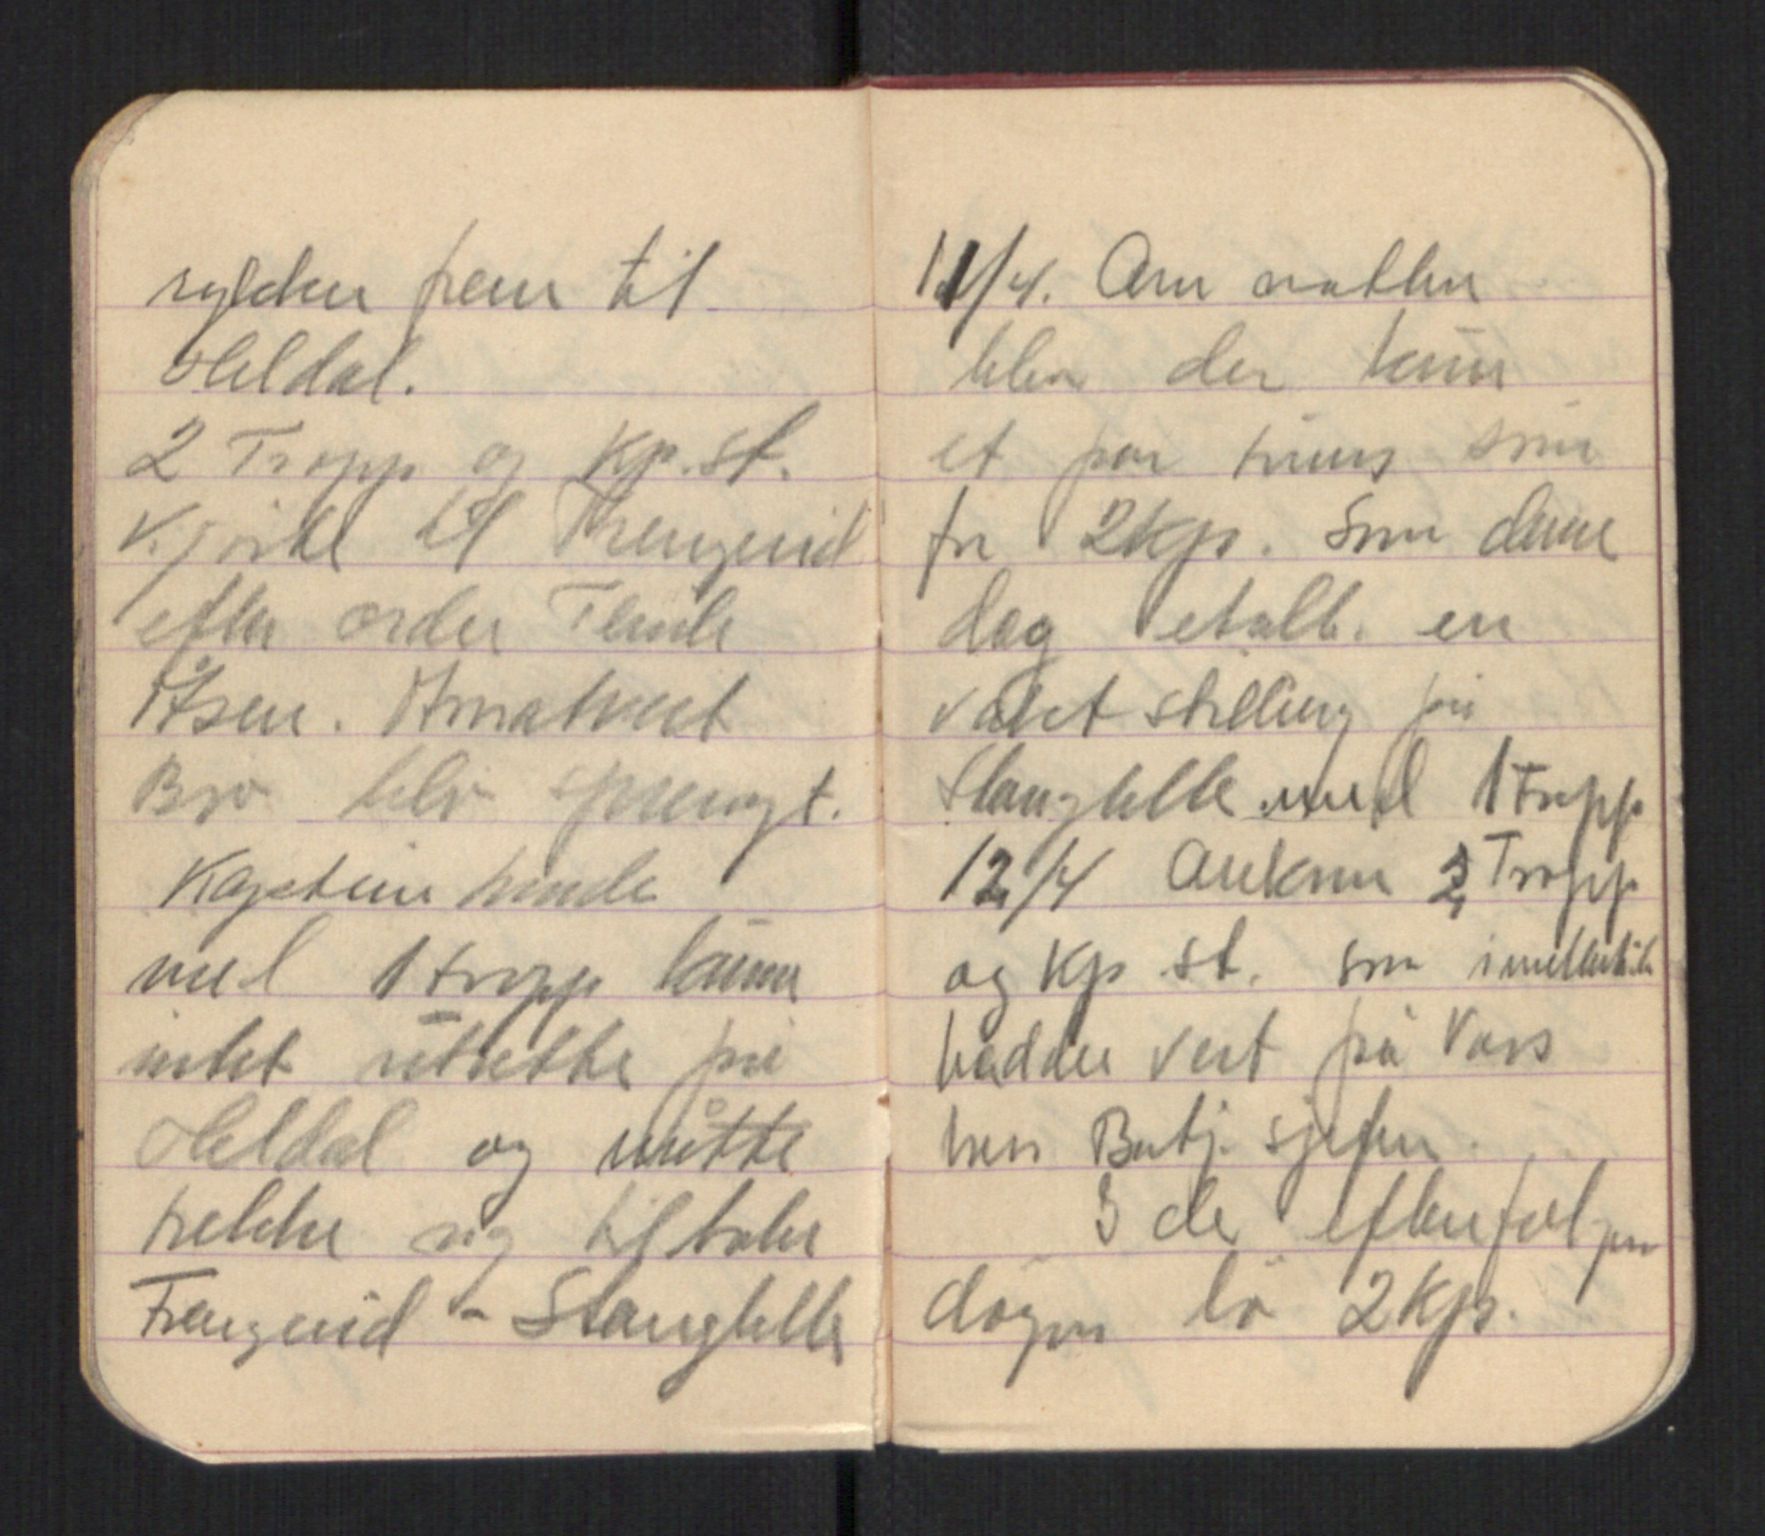 rykker frem til
Heldal.
2 Tropp og Kp.st.
Kjörte til Trengereid
efter order
Åsen. Arnatveit
Bro blev sprengt.
Kaptein
med 1 tropp kunne
intet utrette på
Heldal og måtte
trekke sig tilbake
Trengereid - Stanghelle
11/4. Om natten
blev der kun
et par
fra 2Kp. som denne
dag etabl. en
vakt stilling på
Stanghelle med 1 tropp
12/4 Ankom 2 Tropp
og Kp st. som imellertid
hadde vert på Voss
hos Batj. sjefen.
I de efterfølgen
døgn lå 2Kp.